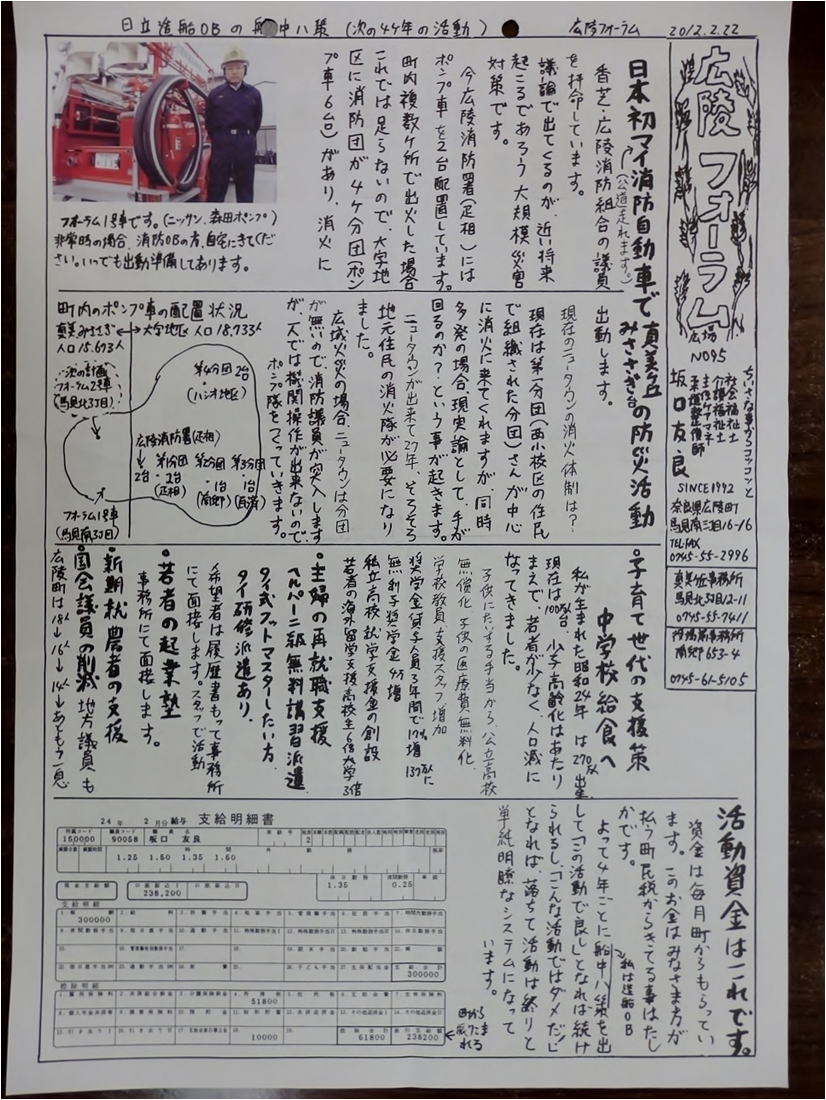 日立造船OBの船中八策 (次の4ケ年の活動)
広陵フォーラム 2012.2.22
広陵フォーラム
広場
NO95
ちいさな事からコツコツと
社会福祉士
介護福祉士
主任ケアマネ
柔道整復師
坂口友良
SINCE1992
奈良県広陵町
馬見南三丁目16-16
TEL・FAX
0745-55-2996
真美ヶ丘事務所
馬見北3丁目12-11
0745-55-7411
役場前事務所
南郷653-4
0745-61-5105
日本初マイ消防自動車で真美ヶ丘
みささぎ台の防災活動
(公道走れます。)
香芝・広陵消防組合の議員
を拝命しています。
議論で出てくるのが、近い将来
起こるであろう大規模災害
対策です。
今広陵消防署(疋相)には
ポンプ車を2台配置しています。
町内複数ケ所で出火した場合
これでは足らないので、大字地
区に消防団が4ケ分団(ポン
プ車6台)があり、消火に
出動します。
フォーラム1号車です。(ニッサン、森田ポンプ)
非常時の場合、消防OBの方、自宅にきてくだ
さい。いつでも出動準備してあります。
現在のニュータウンの消火体制は?
現在は第一分団(西小校区の住民
で組織された分団)さんが中心
に消火に来てくれますが、同時
多発の場合、現実論として、手が
回るのか?という事が起きます。
ニュータウンが出来て27年、そろそろ
地元住民の消火隊が必要になり
ました。
広域火災の場合、ニュータウンは分団
が無いので、消防議員が突入します
が、一人では機関操作が出来ないので
ポンプ隊をつくっていきます。
町内のポンプ車の配置状況
真美みささぎ ←→ 大字地区 人口18,733人
人口15,673人
次の計画
フォーラム2号車
(馬見北3丁目)
第4分団 2台
(ハシオ地区)
広陵消防署(疋相)
2台
第1分団
2台
(疋相)
第2分団
1台
(南郷)
第3分団
1台
(百済)
フォーラム1号車
(馬見南3丁目)
・子育て世代の支援策
中学校給食へ
私が生まれた昭和24年は270万人出生
現在は100万台、少子高齢化はあたり
まえで、若者が少なく、人口減に
なってきました。
子供にたいする手当から、公立高校
無償化、子供の医療費無料化、
学校教員、支援スタッフ増加
奨学金貸与人員3年間で17%増
無利子奨学金4万増
私立高校就学支援金の創設
若者の海外留学支援
・主婦の再就職支援
ヘルパー二級無料講習派遣
タイ式フットマスターしたい方、
タイ研修派遣あり、
希望者は履歴書もって事務所
にて面接します。スタッフで活動
・若者の起業塾
事務所にて面接します。
・新期就農者の支援
・国会議員の削減 地方議員も
広陵町は18人→16人→14人→あともう一息
活動資金はこれです。
資金は毎月町からもらってい
ます。このお金はみなさま方が
払う町民税からきてる事はたし
かです。
よって4年ごとに船中八策を出
して「この活動で良し」となれば続け
られるし「こんな活動ではダメだ」
となれば、落ちて活動は終りと
単純明瞭なシステムになって
います。
私は造船OB
24年 2月分給与 支給明細書
150000 90058 坂口 友良
1.25 1.50 1.35 1.60
1.35 0.25
238,200
支給明細
300000
300000
控除明細
51800
10000
61800
238200
町から振りこまれる